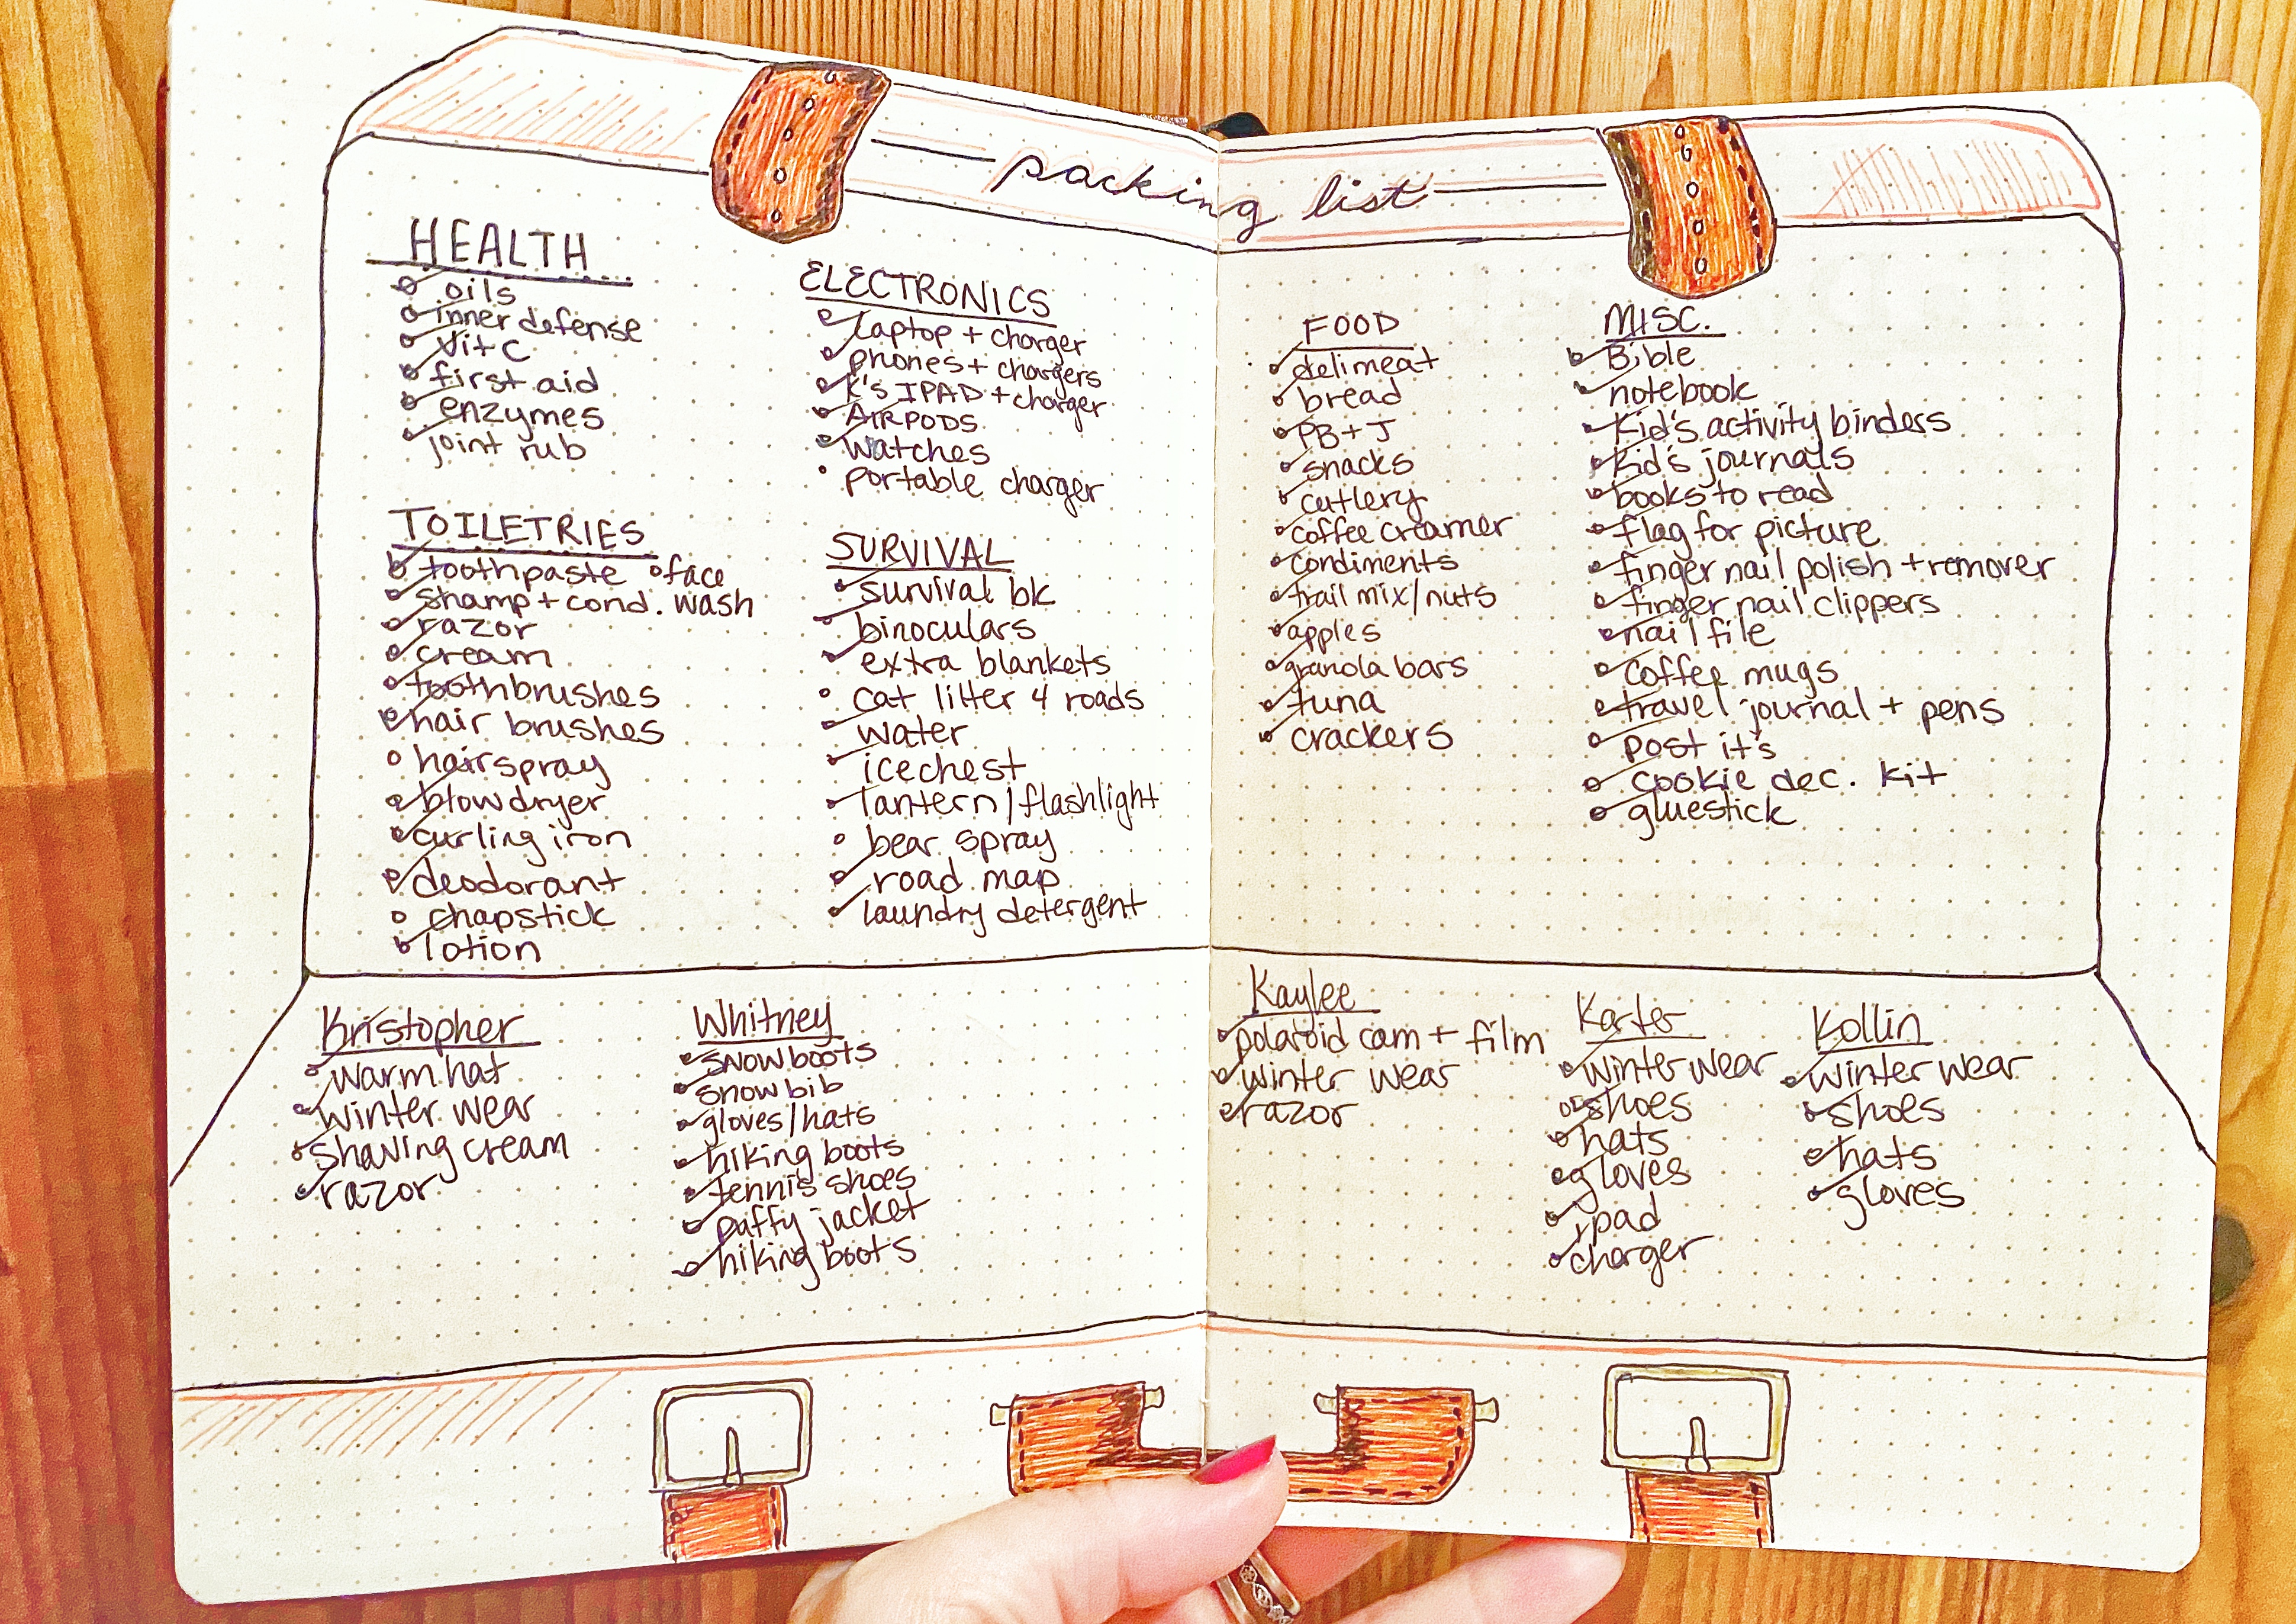 packing list
HEALTH
oils
inner defense
Vit C
first aid
enzymes
joint rub
TOILETRIES
toothpaste
face wash
shamp + cond.
razor
cream
toothbrushes
hair brushes
hairspray
blowdryer
curling iron
deodorant
chapstick
lotion
ELECTRONICS
laptop + charger
phones + chargers
K's IPAD + charger
AIRPODS
watches
portable charger
SURVIVAL
survival bk
binoculars
extra blankets
cat litter 4 roads
water
icechest
lantern/flashlight
bear spray
road map
laundry detergent
FOOD
delimeat
bread
PB + J
snacks
cutlery
coffee creamer
condiments
trail mix/nuts
apples
granola bars
tuna
crackers
MISC.
Bible
notebook
Kid's activity binders
Kid's journals
books to read
flag for picture
finger nail polish + remover
finger nail clippers
nail file
coffee mugs
travel journal + pens
post it's
cookie dec. kit
gluestick
Kristopher
warm hat
winter wear
shaving cream
razor
Whitney
snow boots
snow bib
gloves/hats
hiking boots
tennis shoes
puffy jacket
hiking boots
Kaylee
polaroid cam + film
winter wear
razor
Karter
winter wear
shoes
hats
gloves
ipad
charger
Kollin
winter wear
shoes
hats
gloves